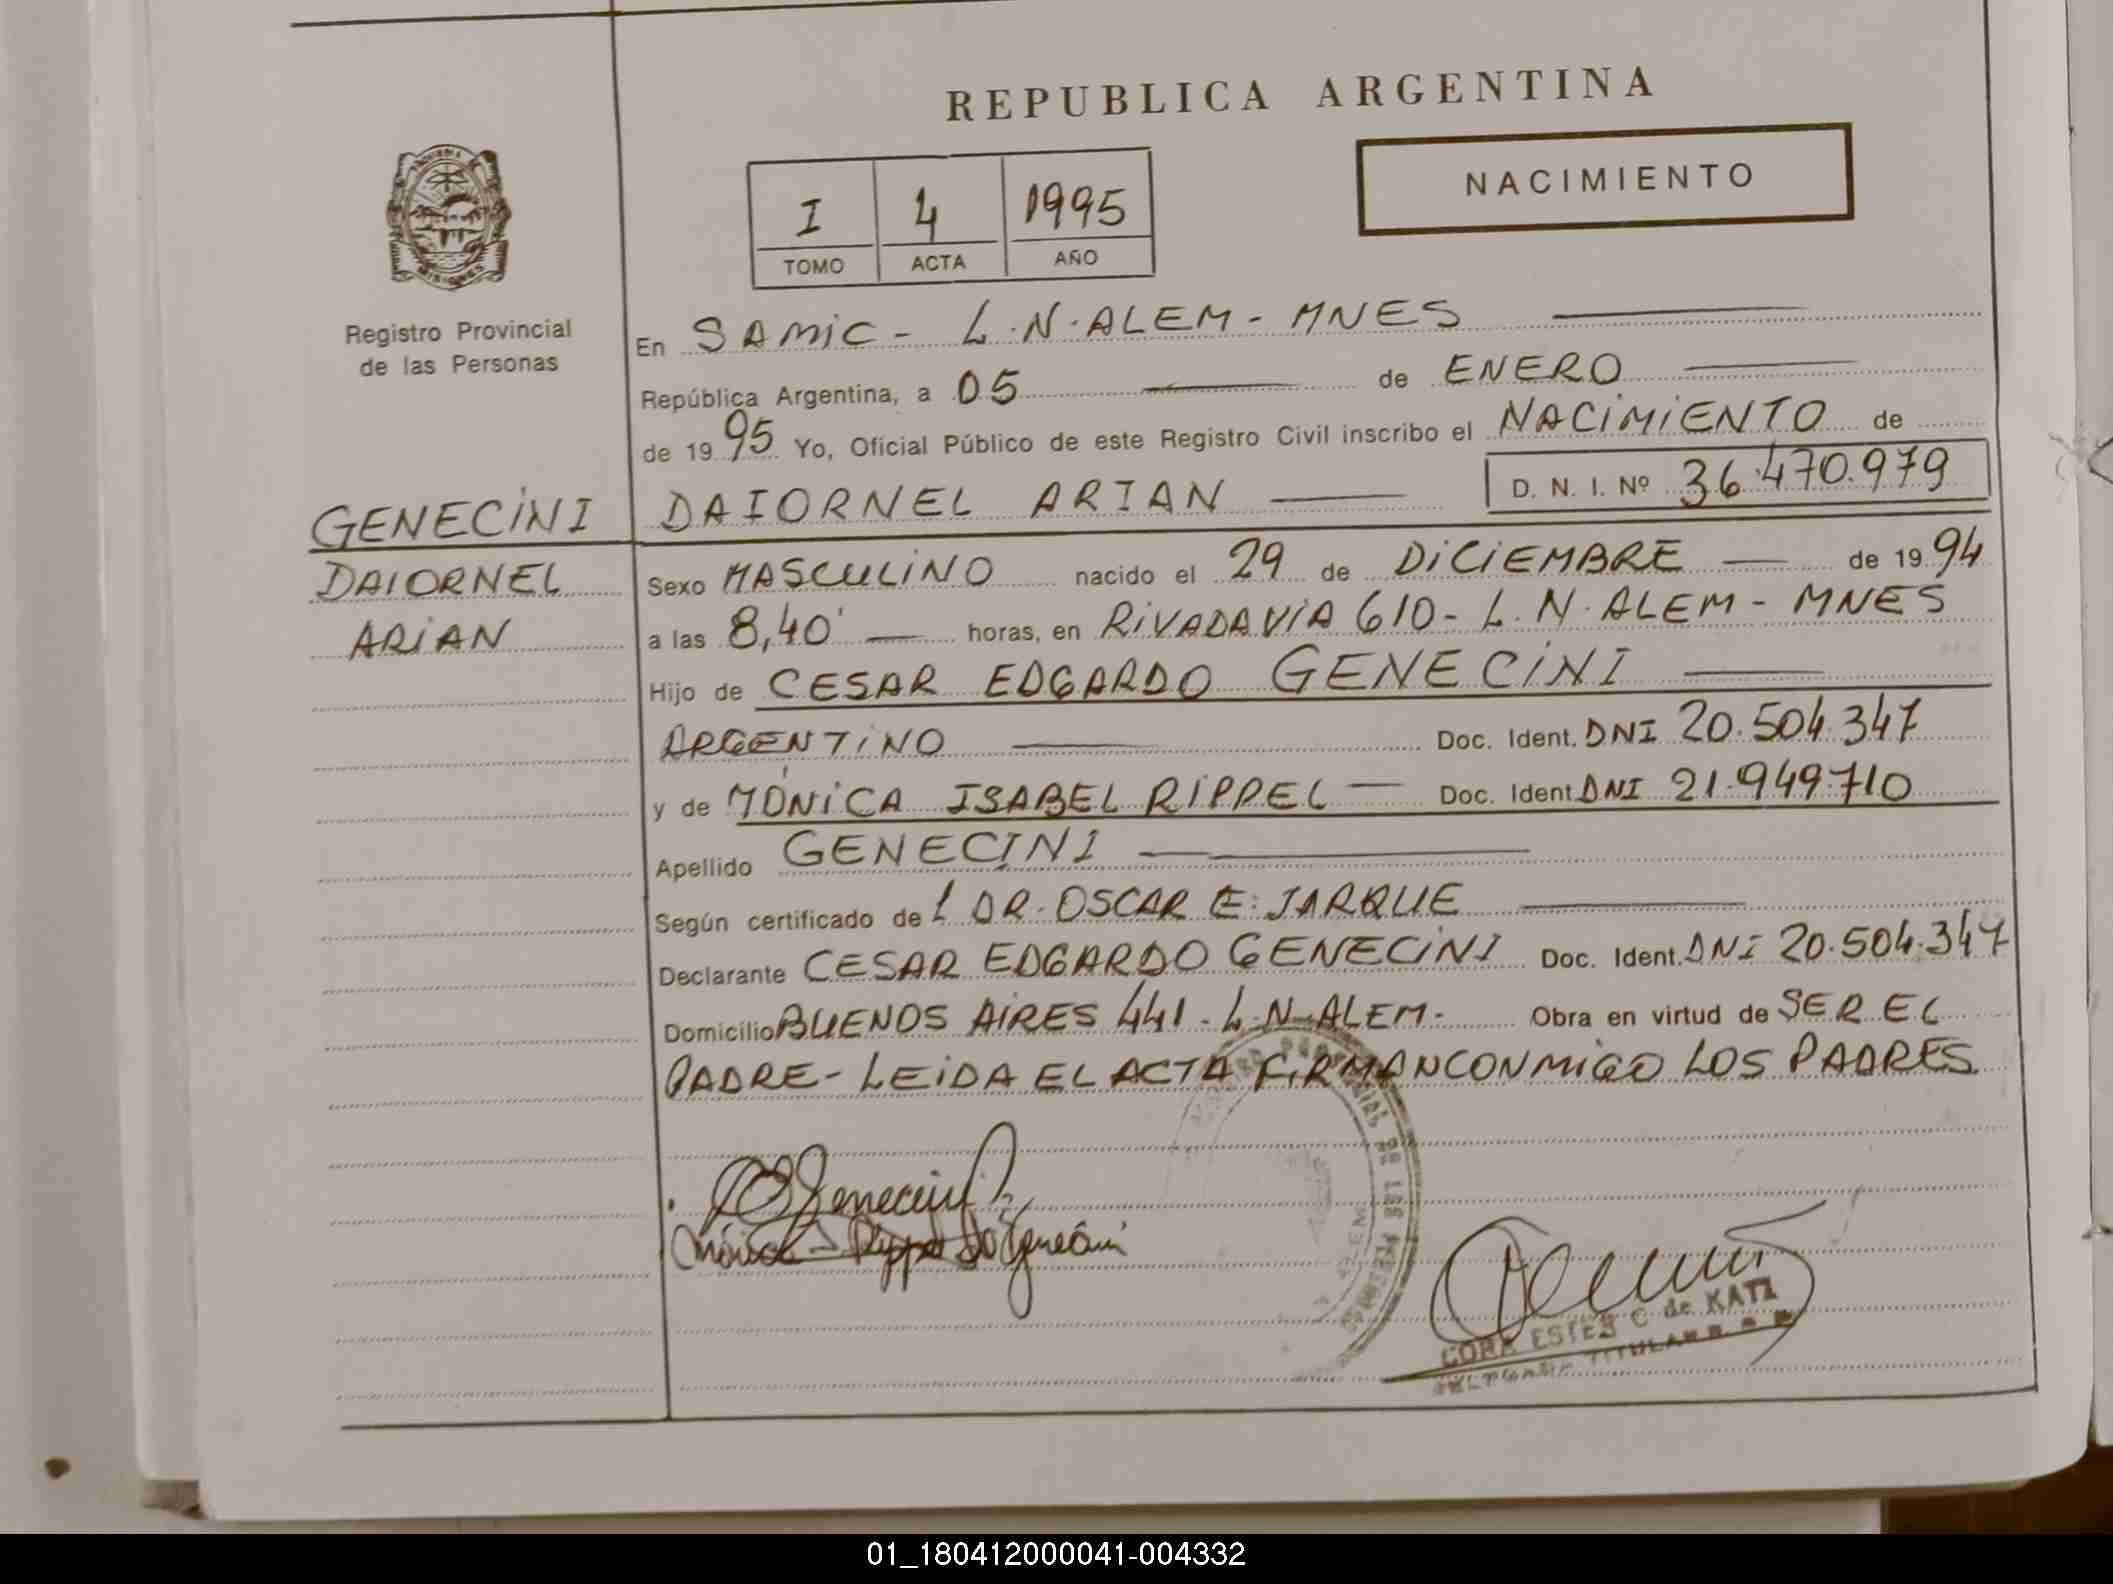 REPUBLICA ARGENTINA
NACIMIENTO
I 4 1995
TOMO ACTA AÑO
Registro Provincial
de las Personas
En SAMIC - L.N. ALEM - MNES
República Argentina, a 05 de ENERO
de 1995 Yo, Oficial Público de este Registro Civil inscribo el NACIMIENTO de
D. N. I. Nº 36.470.979
GENECINI DAIORNEL ARIAN
DAIORNEL
ARIAN
Sexo MASCULINO nacido el 29 de DICIEMBRE de 1994
a las 8,40' horas, en RIVADAVIA 610 - L.N. ALEM - MNES
Hijo de CESAR EDGARDO GENECINI
ARGENTINO Doc. Ident. DNI 20.504.347
y de MÓNICA ISABEL RIPPEL Doc. Ident DNI 21.949.710
Apellido GENECINI
Según certificado de L DR. OSCAR E. JARQUE
Declarante CESAR EDGARDO GENECINI Doc. Ident. DNI 20.504.347
Domicilio BUENOS AIRES 441 - L.N. ALEM - Obra en virtud de SER EL
PADRE - LEIDA EL ACTA FIRMAN CONMIGO LOS PADRES
DE LAS PERSONAS
C de KATZ
TITULAR
01_180412000041-004332